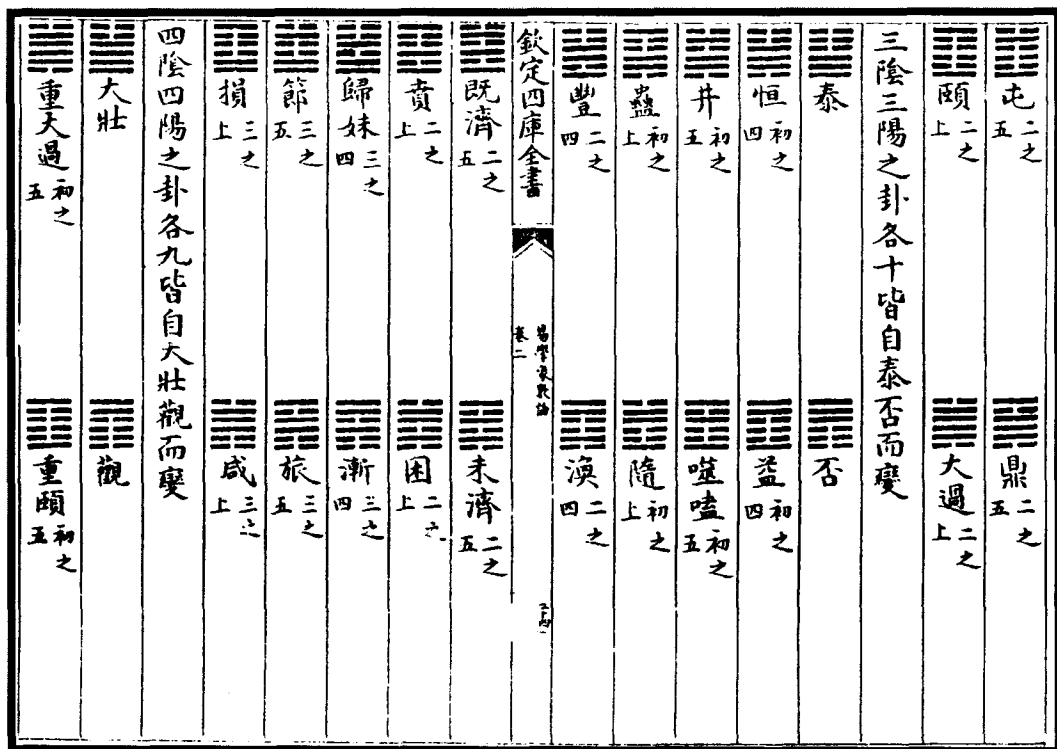 屯二之五 鼎二之五
頤二之上 大過二之上
三陰三陽之卦各十皆自泰否而變
泰 否
恒初之四 益初之四
井初之五 噬嗑初之五
蠱初之上 隨初之上
豐二之四 渙二之四
欽定四庫全書 易學象數論 卷二
既濟二之五 未濟二之五
賁二之上 困二之上
歸妹三之四 漸三之四
節三之五 旅三之五
損三之上 咸三之上
四陰四陽之卦各九皆自大壯觀而變
大壯 觀
重大過初之五 重頤初之五